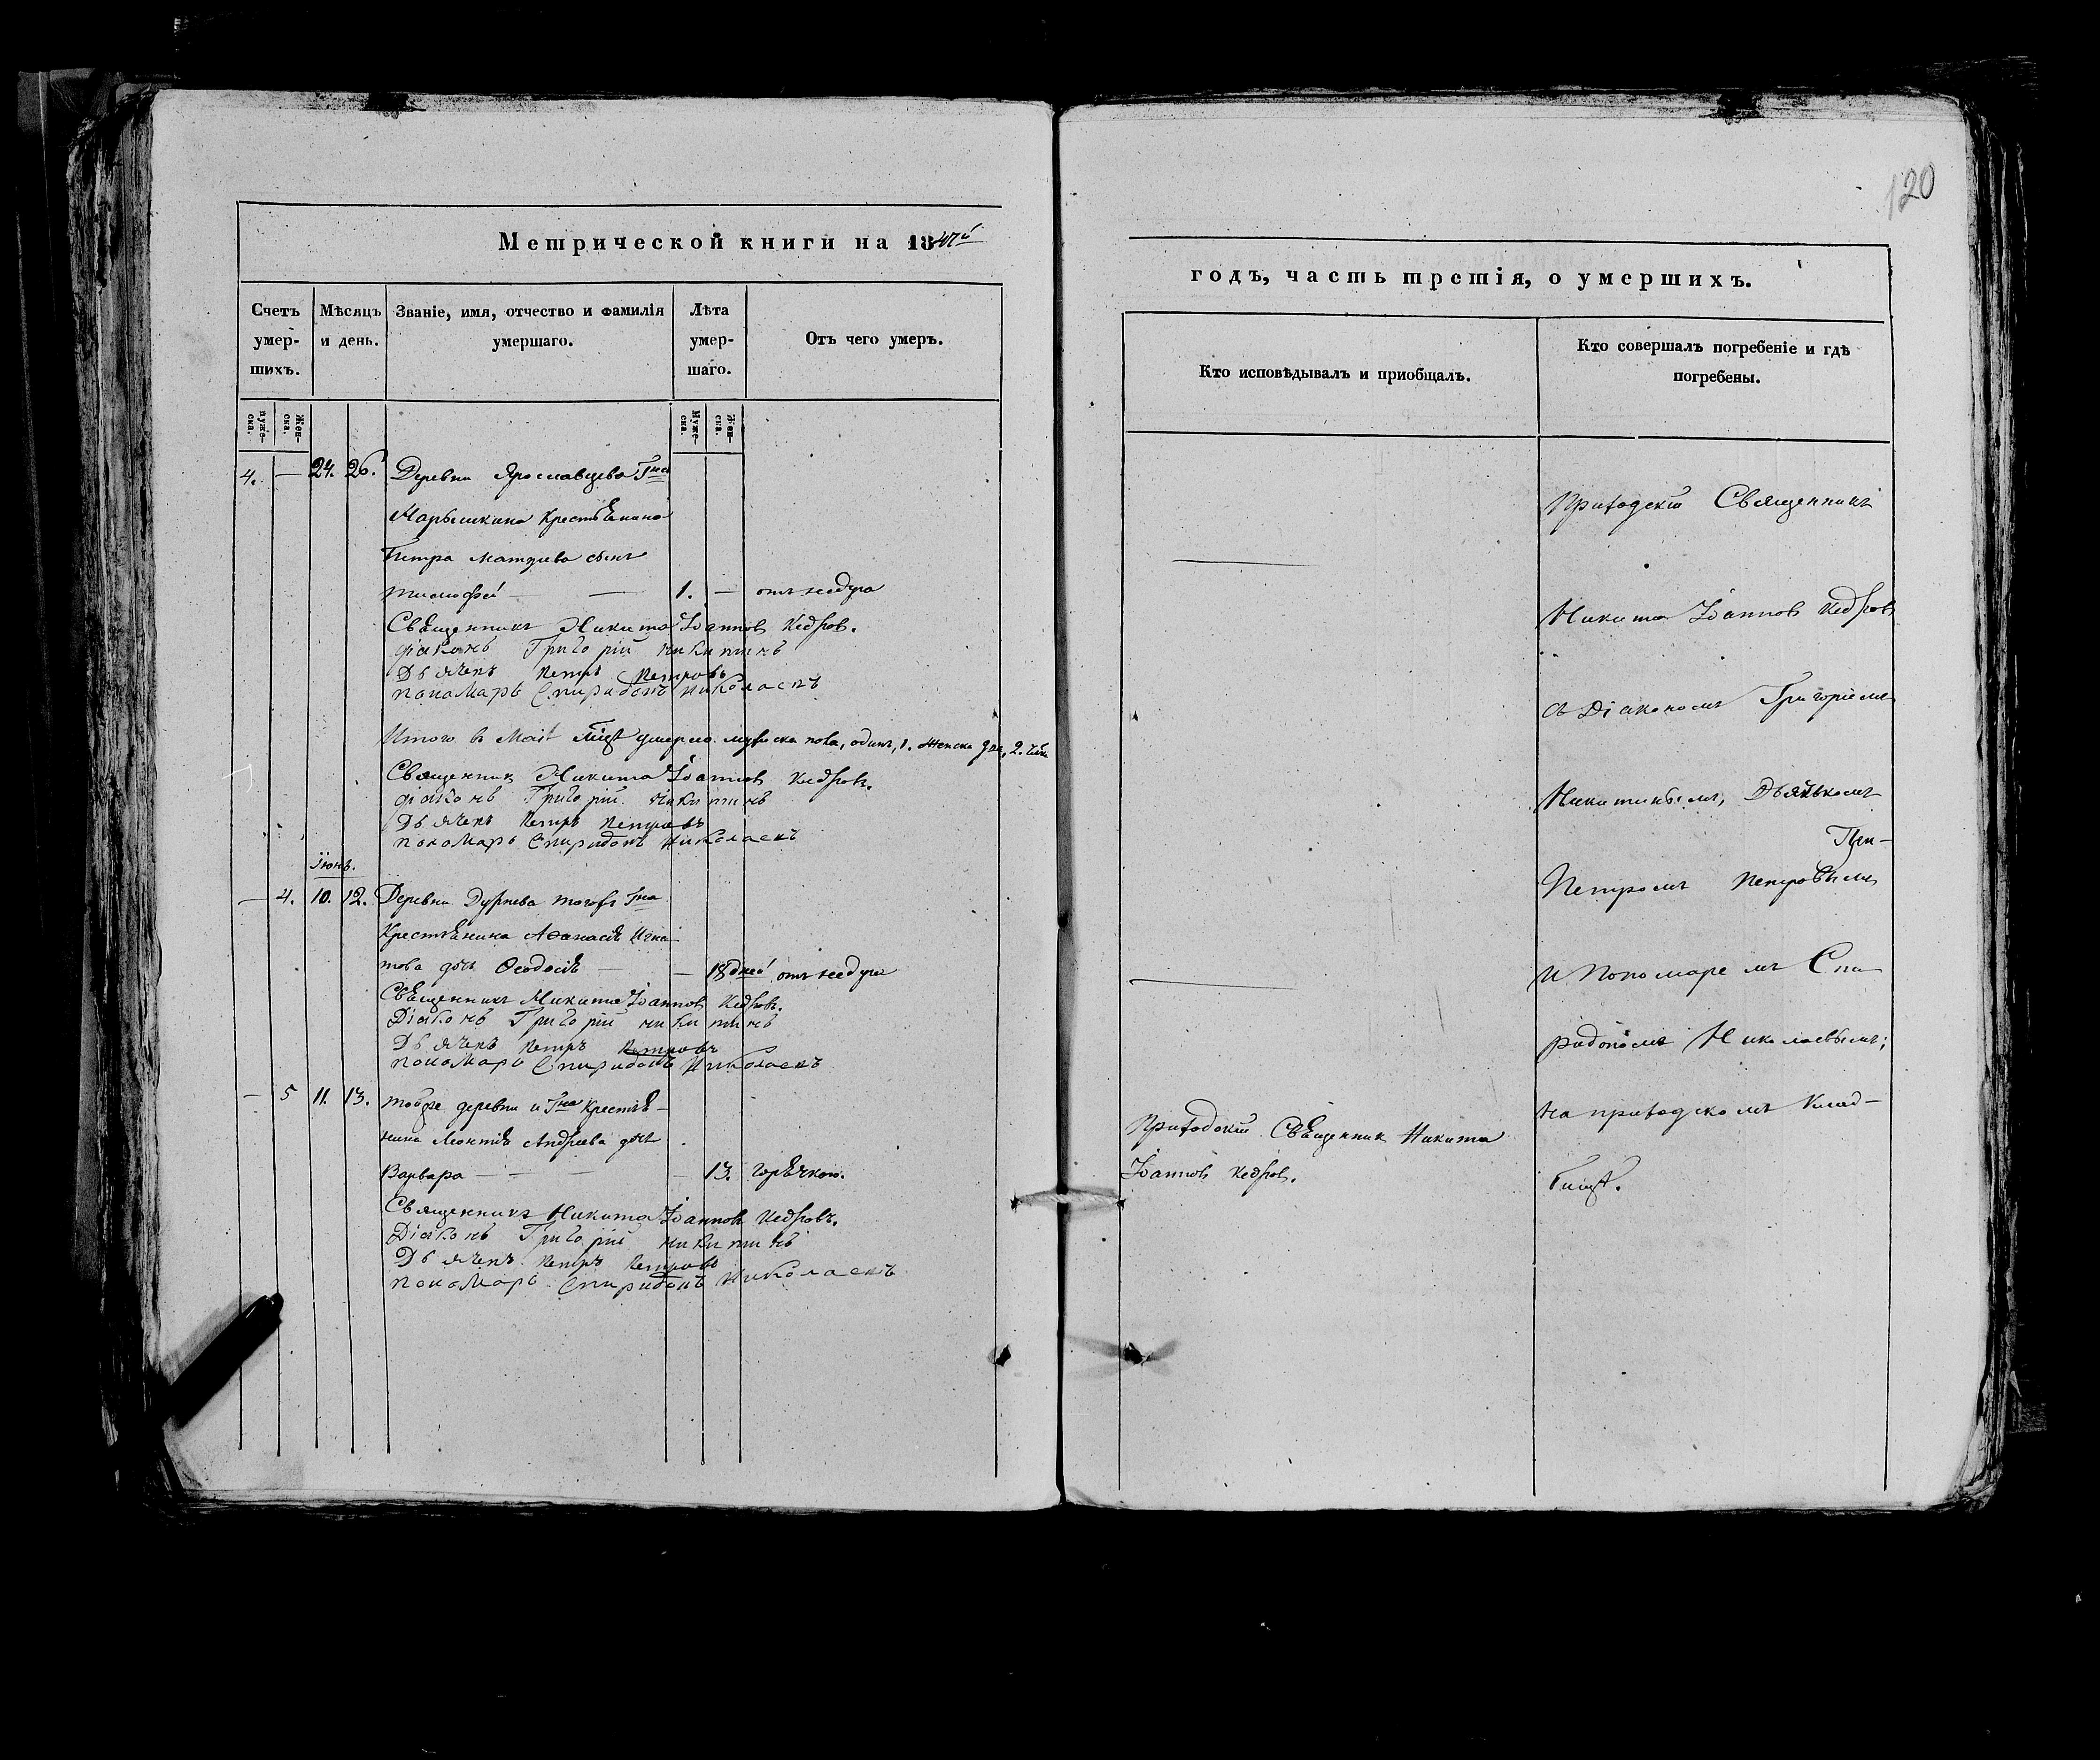 Метрической книги на 1847й
Счетъ умер-шихъ.
Мѣсяцъ и день.
Званіе, имя, отчество и фамилія умершаго.
Лѣта умер-шаго.
Отъ чего умеръ.
Муже-ска.
Жен-ска.
Муже-ска.
Жен-ска.
4. — 24. 26. Деревни Ярославцева Гна
Нарышкина крестьянина
Петра Матѵеева сынъ
Тимофей — — 1. — отъ недуга
Священникъ Никита Іоанновъ Кедровъ.
Діаконъ Григорій Никитинъ
Дьячекъ Петръ Петровъ
Пономарь Спиридонъ Николаевъ
Итого въ Маіѣ умерло мужеска пола, одинъ, 1. женска два, 2.
Священникъ Никита Іоанновъ Кедровъ.
Діаконъ Григорій Никитинъ
Дьячекъ Петръ Петровъ
Пономарь Спиридонъ Николаевъ
Іюнь.
— 4. 10. 12. Деревни Дурнева тогожъ Гна
Крестьянина Аѳанасія Игна-
това дочь Ѳеодосія — — 18 дней отъ недуга
Священникъ Никита Іоанновъ Кедровъ.
Діаконъ Григорій Никитинъ
Дьячекъ Петръ Петровъ
Пономарь Спиридонъ Николаевъ
— 5 11. 13. Тойже деревни и Гна крестья-
нина Леонтія Андреева дочь
Варвара — — — — 13. горячкою.
Священникъ Никита Іоанновъ Кедровъ.
Діаконъ Григорій Никитинъ
Дьячекъ Петръ Петровъ
Пономарь Спиридонъ Николаевъ
120
годъ, часть третія, о умершихъ.
Кто исповѣдывалъ и приобщалъ.
Кто совершалъ погребеніе и гдѣ погребены.
Приходскій Священникъ
Никита Іоанновъ Кедровъ
съ Діакономъ Григоріемъ
Никитинымъ, Дьячкомъ
Петромъ Петровымъ
и Пономаремъ Спи-
ридономъ Николаевымъ;
на приходскомъ клад-
бищѣ.
Приходскій Священникъ Никита
Іоанновъ Кедровъ.